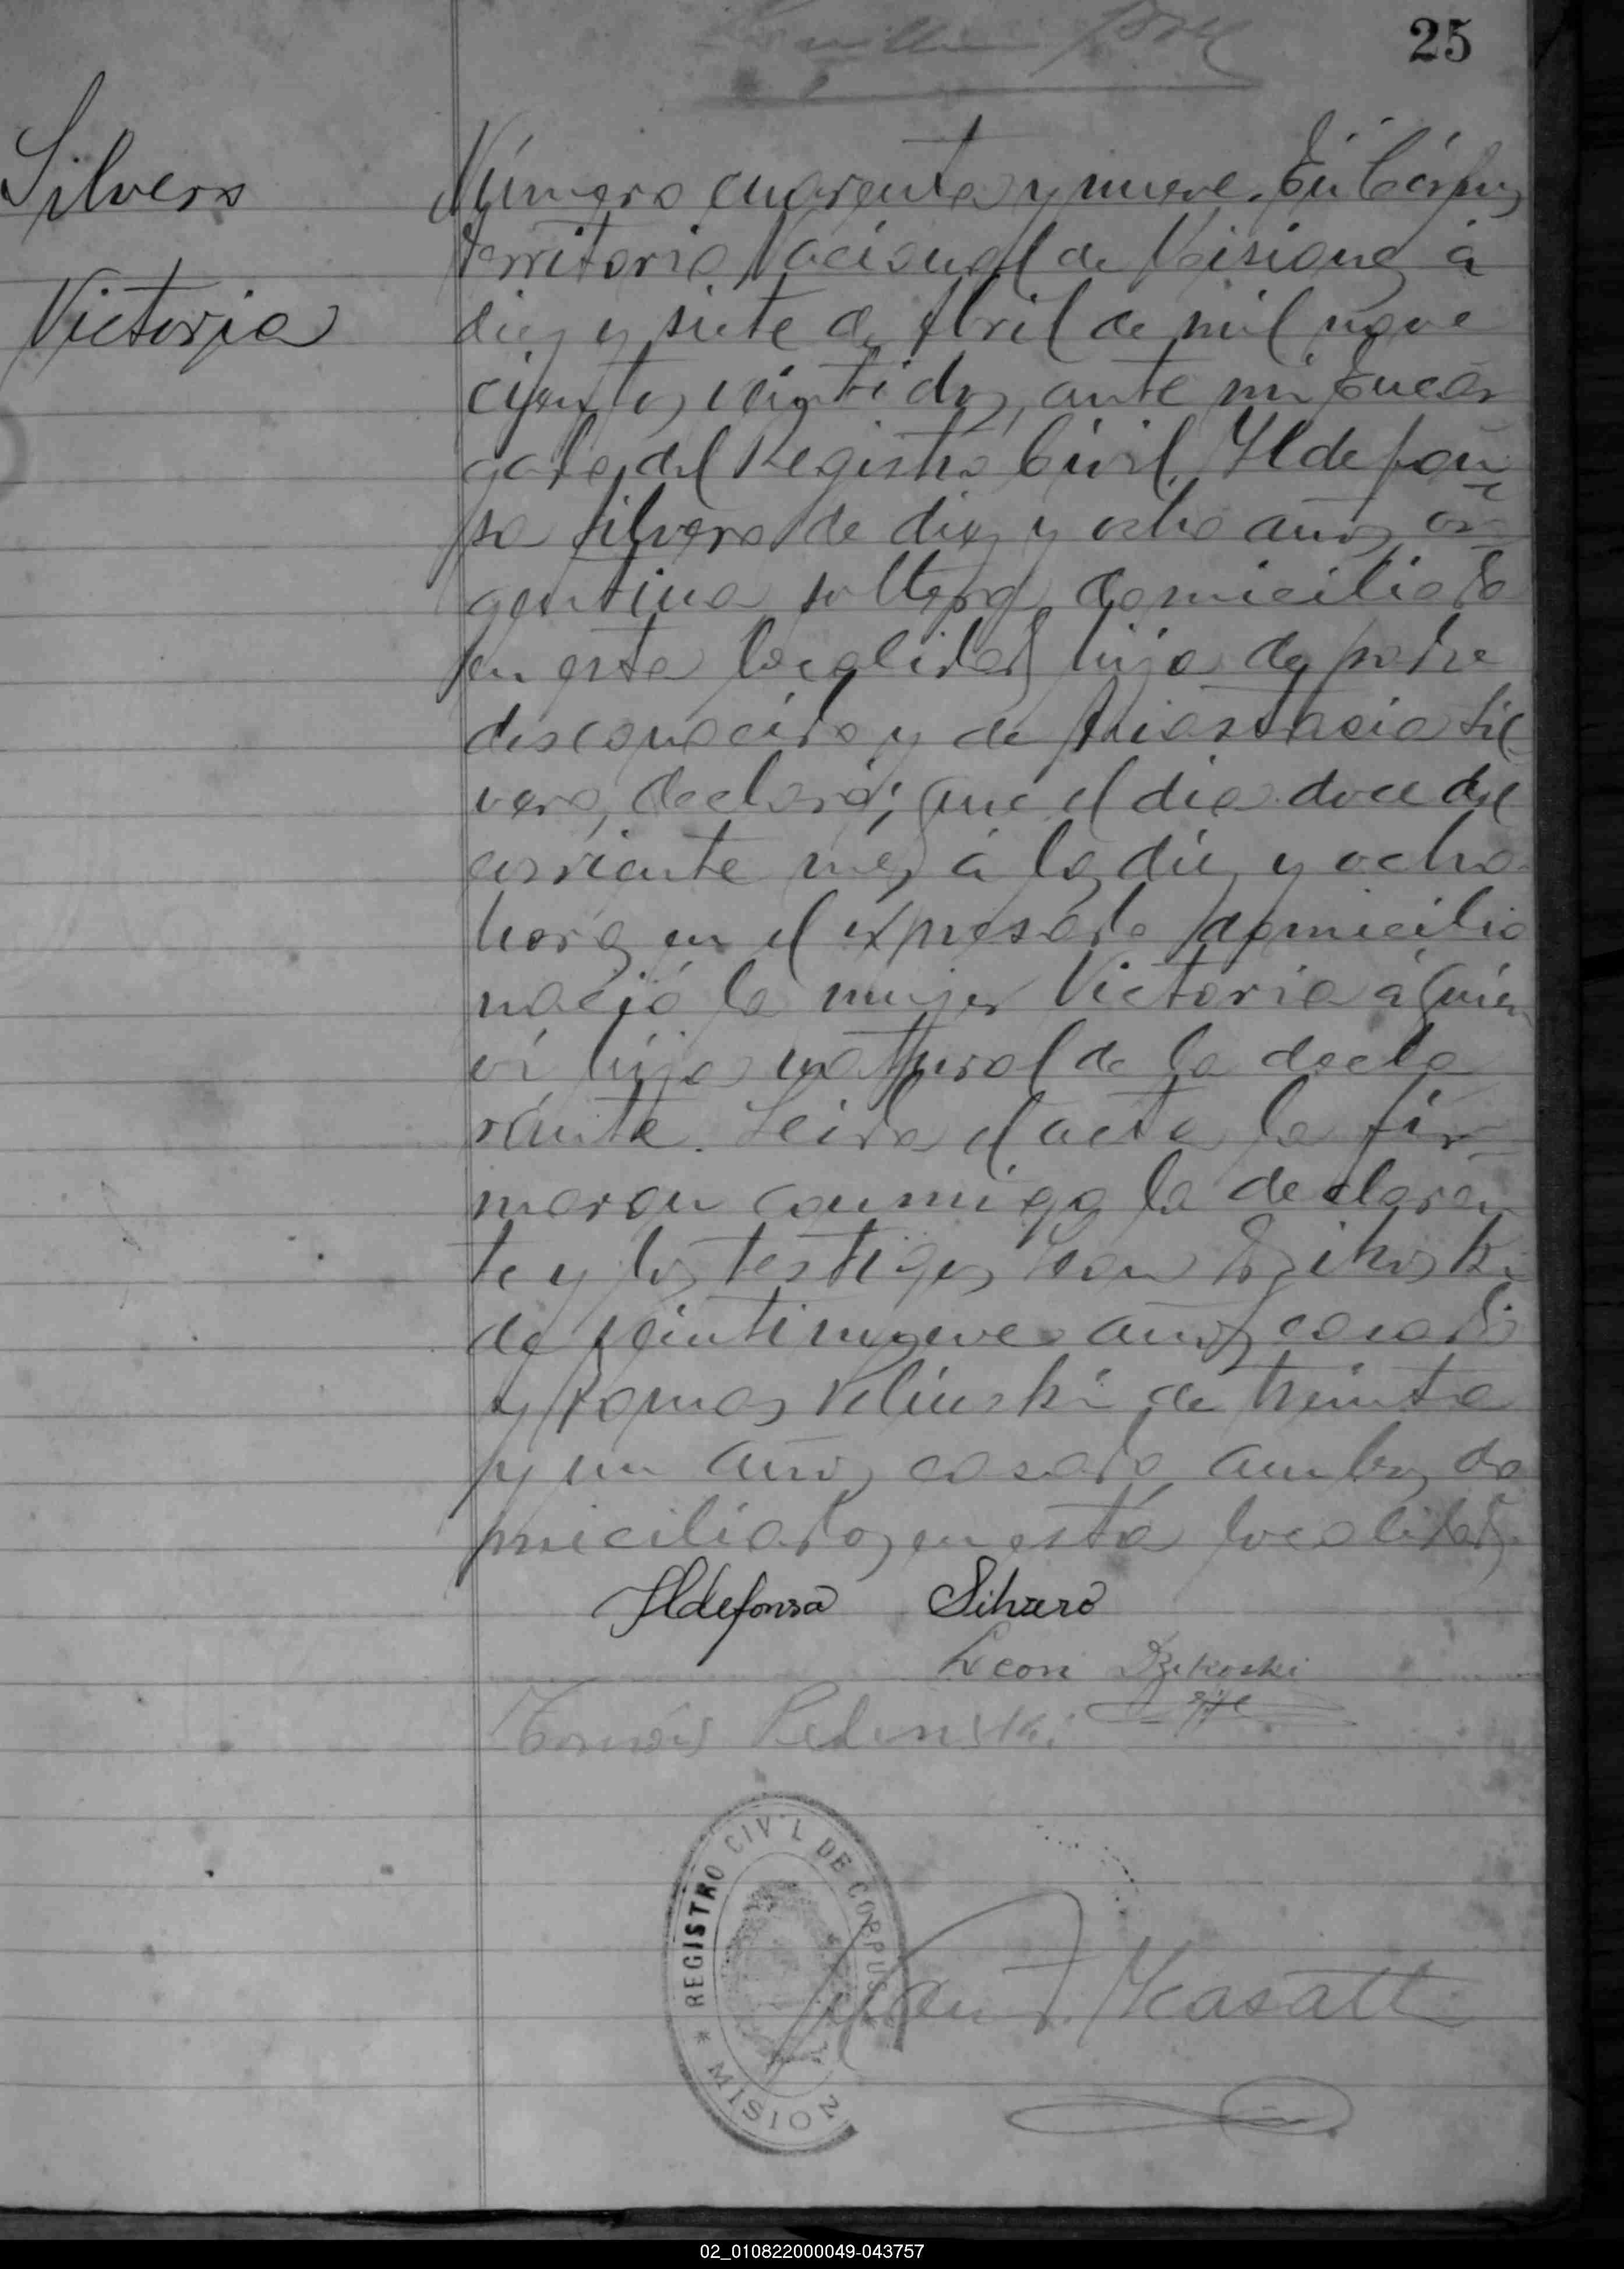 25
Silvero
Victoria
Número cuarenta y nueve. En Córpus
territorio Nacional de Misiones á
diez y siete de Abril de mil nove
cientos veintidos, ante mi Encar
gado del Registro Civil, Ildefon
sa Silvero de diez y ocho años ar
gentina soltera, domiciliada
en esta localidad hija de padre
desconocido y de Anastacia Sil
vero, declaró; que el dia doce del
corriente mes á las diez y ocho
horas en el expresado domicilio
nació la mujer Victoria á quien
ví hija natural de la decla
rante. Leida el acta la fir
maron conmigo la declaran
te y los testigos Leon
de veintinueve años casado
y Tomas Pelinski de treinta
y un años, casado, ambos do
miciliados en esta localidad.
Ildefonsa Silvero
Leon Dzikoski
Tomás Pelinski
REGISTRO CIVIL DE CORPUS
* MISION